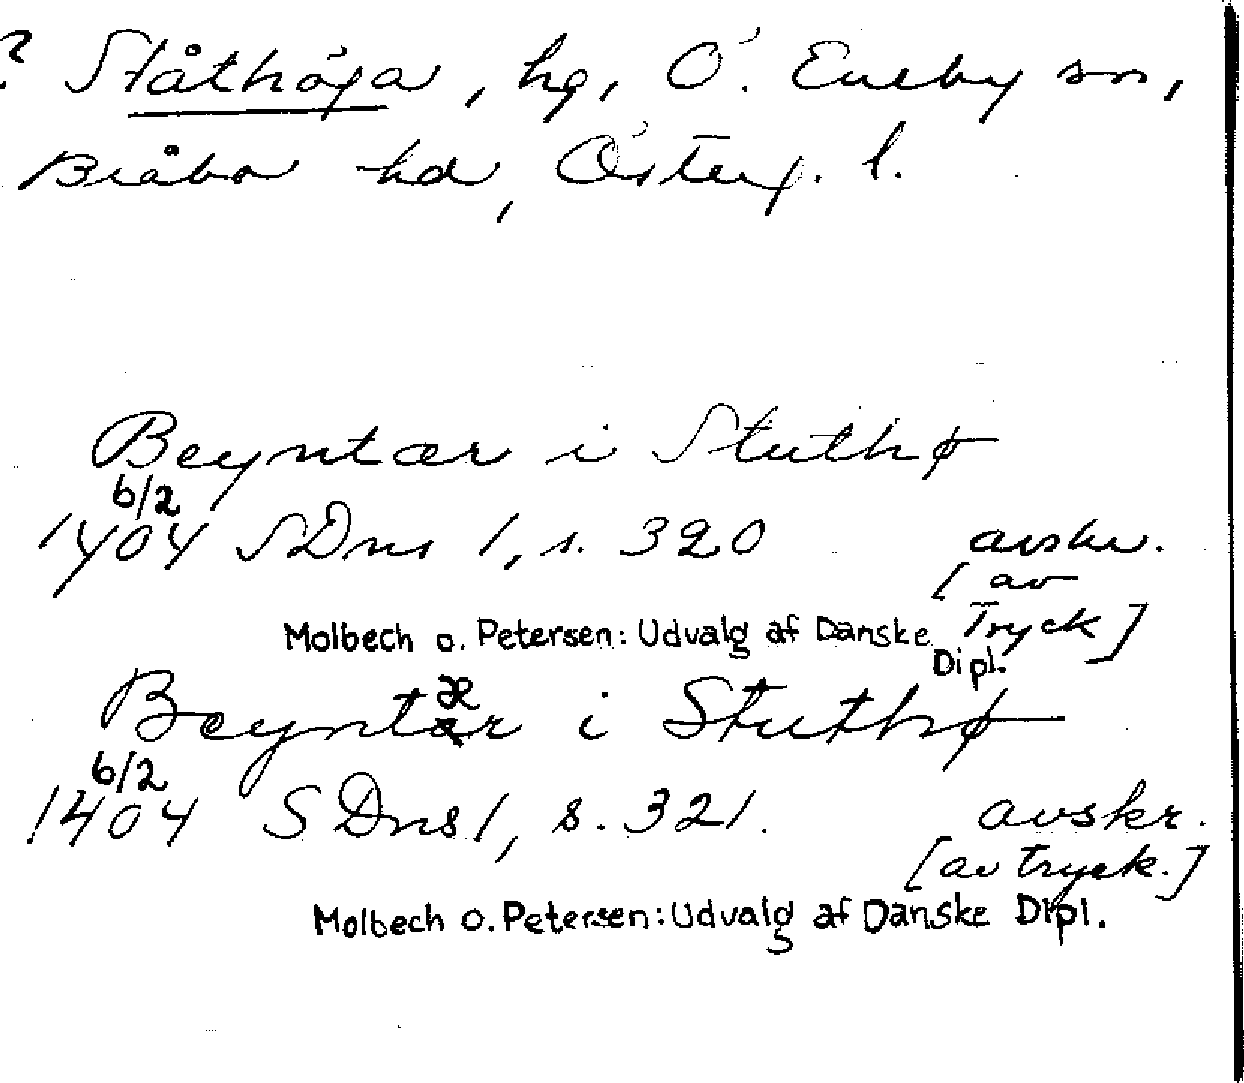 ? Ståthöga, hg, Ö. Eneby sn,
Bråbo hd, Österg. l.
Beyntær i Stuthø
6/2
1404 SDns 1, s. 320 avskr.
[av
Tryck]
Molbech o. Petersen: Udvalg af Danske
Dipl.
Beyntær i Stuthø
6/2
1404 SDns 1, s. 321. avskr.
[av tryck.]
Molbech o. Petersen: Udvalg af Danske Dipl.